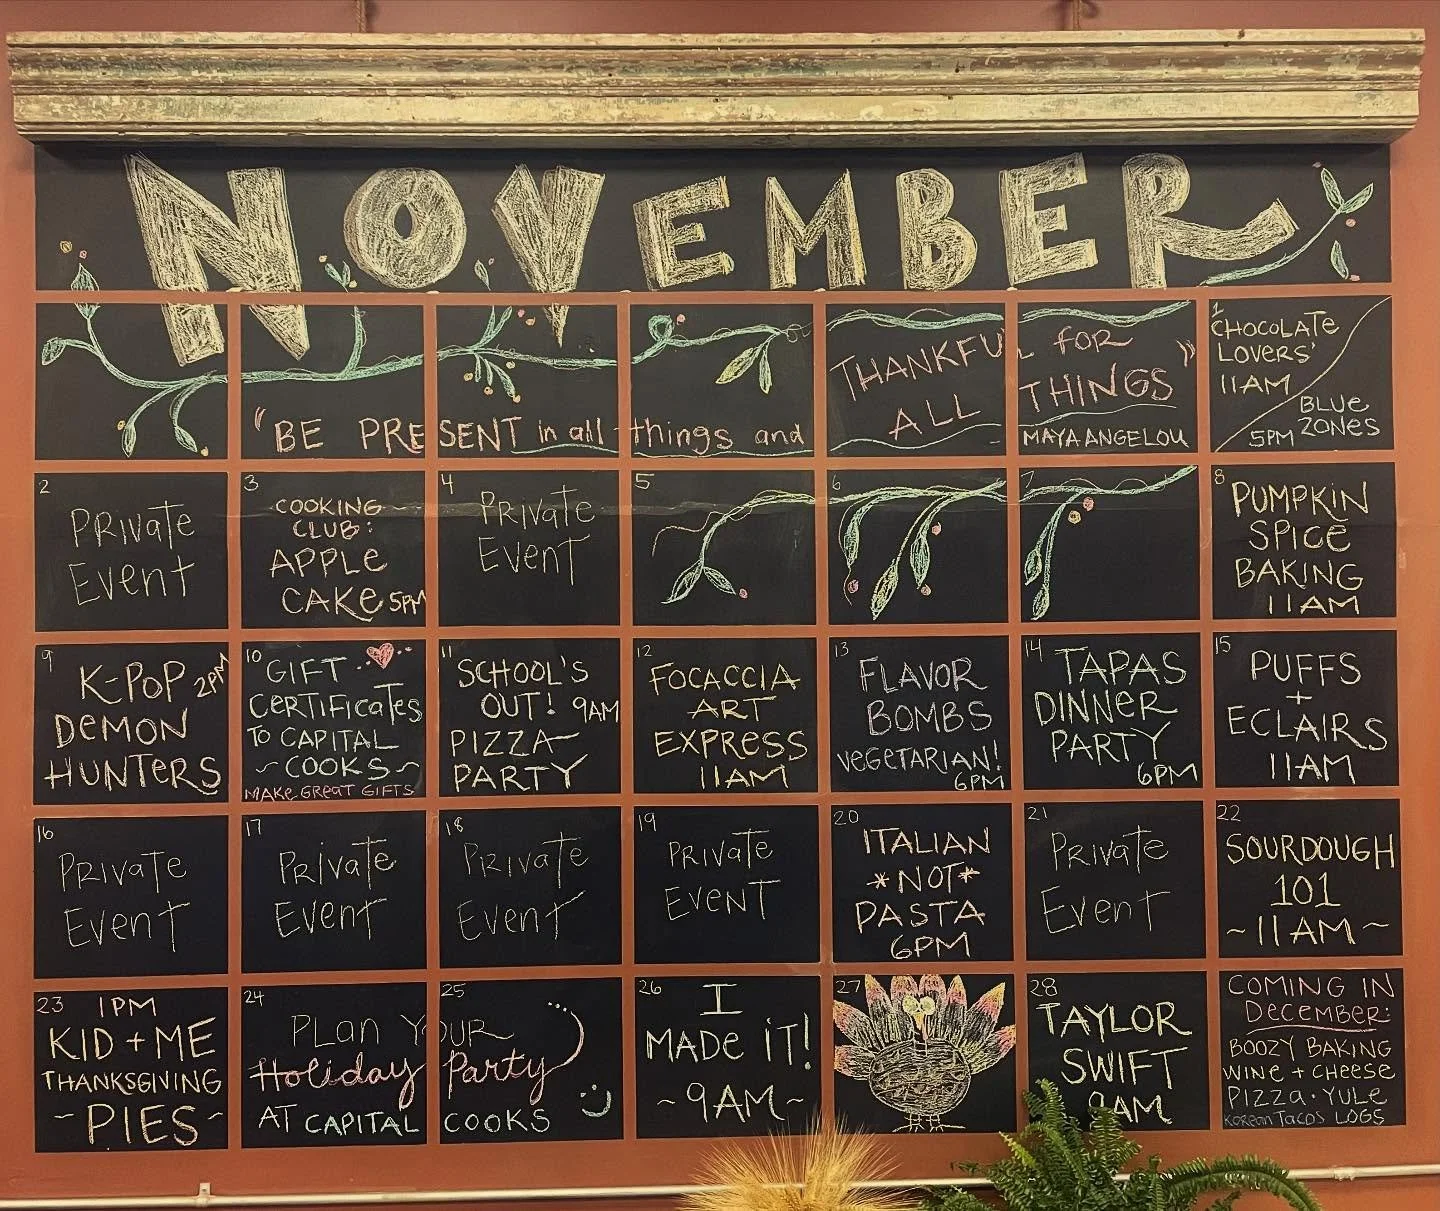 NOVEMBER
"BE PRESENT in all things and
THANKFUL FOR
ALL THINGS"
MAYA ANGELOU
1
CHOCOLATE
LOVERS'
11AM
BLUE
5PM ZONES
2
PRivATE
EvenT
3
COOKING
CLUB:
APPLE
CAKE 5PM
4
PRivATE
EvenT
5
6
7
8
PUMPKiN
SPiCE
BAKING
11AM
9
K-POP 2PM
DEMON
HUNTERS
10
GIFT
CERTIFICATES
TO CAPITAL
~COOKS~
MAKE GREAT GIFTS
11
SCHOOL'S
OUT! 9AM
PIZZA
PARTY
12
FOCACCIA
ART
EXPRESS
11AM
13
FLAVOR
BOMBS
VEGETARIAN!
6PM
14
TAPAS
DINNER
PARTY
6PM
15
PUFFS
+
ECLAIRS
11AM
16
PRivATE
EvenT
17
PRivATE
EvenT
18
PRivATE
EvenT
19
PRivATE
EvenT
20
ITALIAN
*NOT*
PASTA
6PM
21
PRivATE
EvenT
22
SOURDOUGH
101
~11AM~
23
1PM
KID + ME
THANKSGIVING
~PIES~
24
25
PLAN YOUR
Holiday Party
AT CAPITAL COOKS
26
I
MADE iT!
~9AM~
27
28
TAYLOR
SWIFT
9AM
COMING IN
DECEMBER:
BOOZY BAKING
WINE + CHEESE
PIZZA · YULE
KOREAN TACOS LOGS